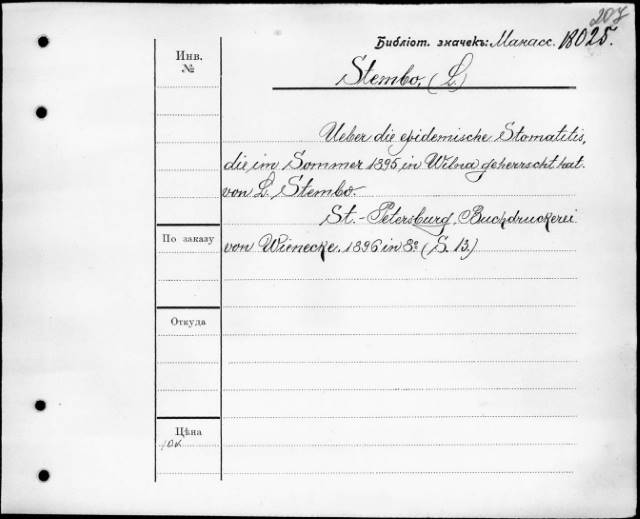 207
Библіот. значекъ: Манасс. 18025.
Инв.
№
Stembo, (L)
Ueber die epidemische Stomatitis,
die im Sommer 1895 in Wilna geherrscht hat.
von L. Stembo.
St.-Petersburg, Buchdruckerei
По заказу
von Wienecke. 1896 in 8º (S. 13.)
Откуда
Цѣна
10к